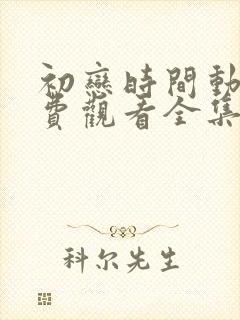 初戀時間動
費觀看全集
科尔先生